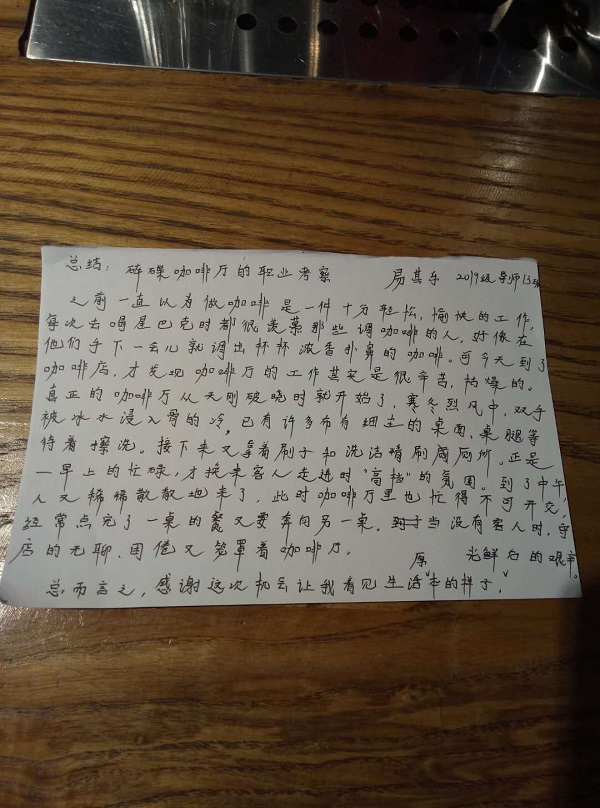 总结: 碎碟咖啡厅的职业考察 易其乐 2019级导师13班
之前一直认为做咖啡是一件十分轻松,愉快的工作,
每次去喝星巴克时都很羡慕那些调咖啡的人,好像在
他们手下一会儿就调出杯杯浓香扑鼻的咖啡。可今天到了
咖啡店,才发现咖啡厅的工作其实是很辛苦,枯燥的。
真正的咖啡厅从天刚破晓时就开始了,寒冬烈风中,双手
被冰水浸入骨的冷,已有许多布有细尘的桌面、桌腿等
待着擦洗。接下来又拿着刷子和洗洁精刷厕所。正是
一早上的忙碌,才换来客人走进时"高档"的氛围。到了中午,
人又稀稀散散地来了,此时咖啡厅里也忙得不可开交,
经常点完了一桌的餐又要奔向另一桌。当没有客人时,守
店的无聊、困倦又笼罩着咖啡厅。
原 光鲜后的艰辛。
总而言之,感谢这次机会让我看见生活本的样子,